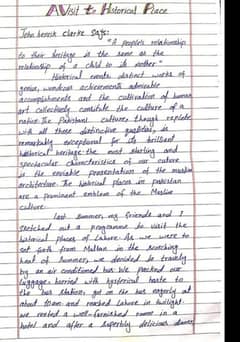 A Visit to Historical Place
John henrik clarke says:
"A people's relationship
to their heritage is the same as the
relationship of a child to its mother."
Historical events distinct works of
genius, wondrous achievements admirable
accomplishments and the cultivation of human
art collectively constitute the culture of a
nation. The Pakistani culture, though replete
with all these distinctive qualities, is
remarkably exceptional for its brilliant
historical heritage. The most alluring and
spectacular characteristics of our culture
is the enviable presentation of the muslim
architecture. The historical places in pakistan
are a prominent emblem of the Muslim
culture.
Last summer, my friends and I
sketched out a programme to visit the
historical places of Lahore. As we were to
set forth from Multan in the scorching
heat of Summer, we decided to travel
by an air conditioned bus. We packed our
luggage, hurried with hysterical haste to
the bus station, got in the bus eagerly at
about 10am and reached Lahore in twilight.
we rented a well-furnished room in a
hotel and after a superbly delicious dinner,